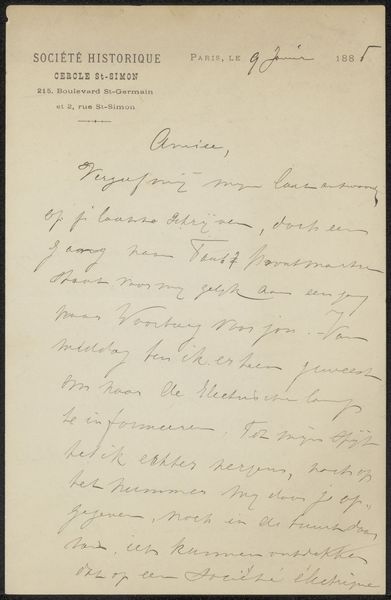 SOCIÉTÉ HISTORIQUE
CERCLE St-SIMON
215, Boulevard St-Germain
et 2, rue St-Simon
PARIS, LE 9 Juin 1885
Amice,
Vergeef mij mijn laat antwoord
op je laatste schrijven, doch een
gang naar
staat voor mij gelijk aan een
naar Voorburg voor jou. Van
middag ben ik er heen geweest
om naar de Electrische lamp
te informeeren. Tot mijn spijt
heb ik echter nergens, noch op
het nummer mij door je op-
gegeven, noch in de buurt daar
van, iets kunnen ontdekken
dat op een Société électrique